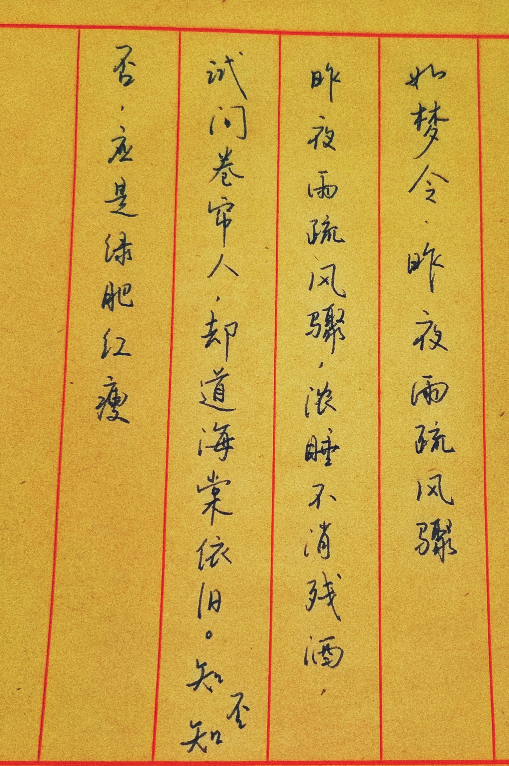 如梦令·昨夜雨疏风骤
昨夜雨疏风骤，浓睡不消残酒，
试问卷帘人，却道海棠依旧。知否知
否，应是绿肥红瘦